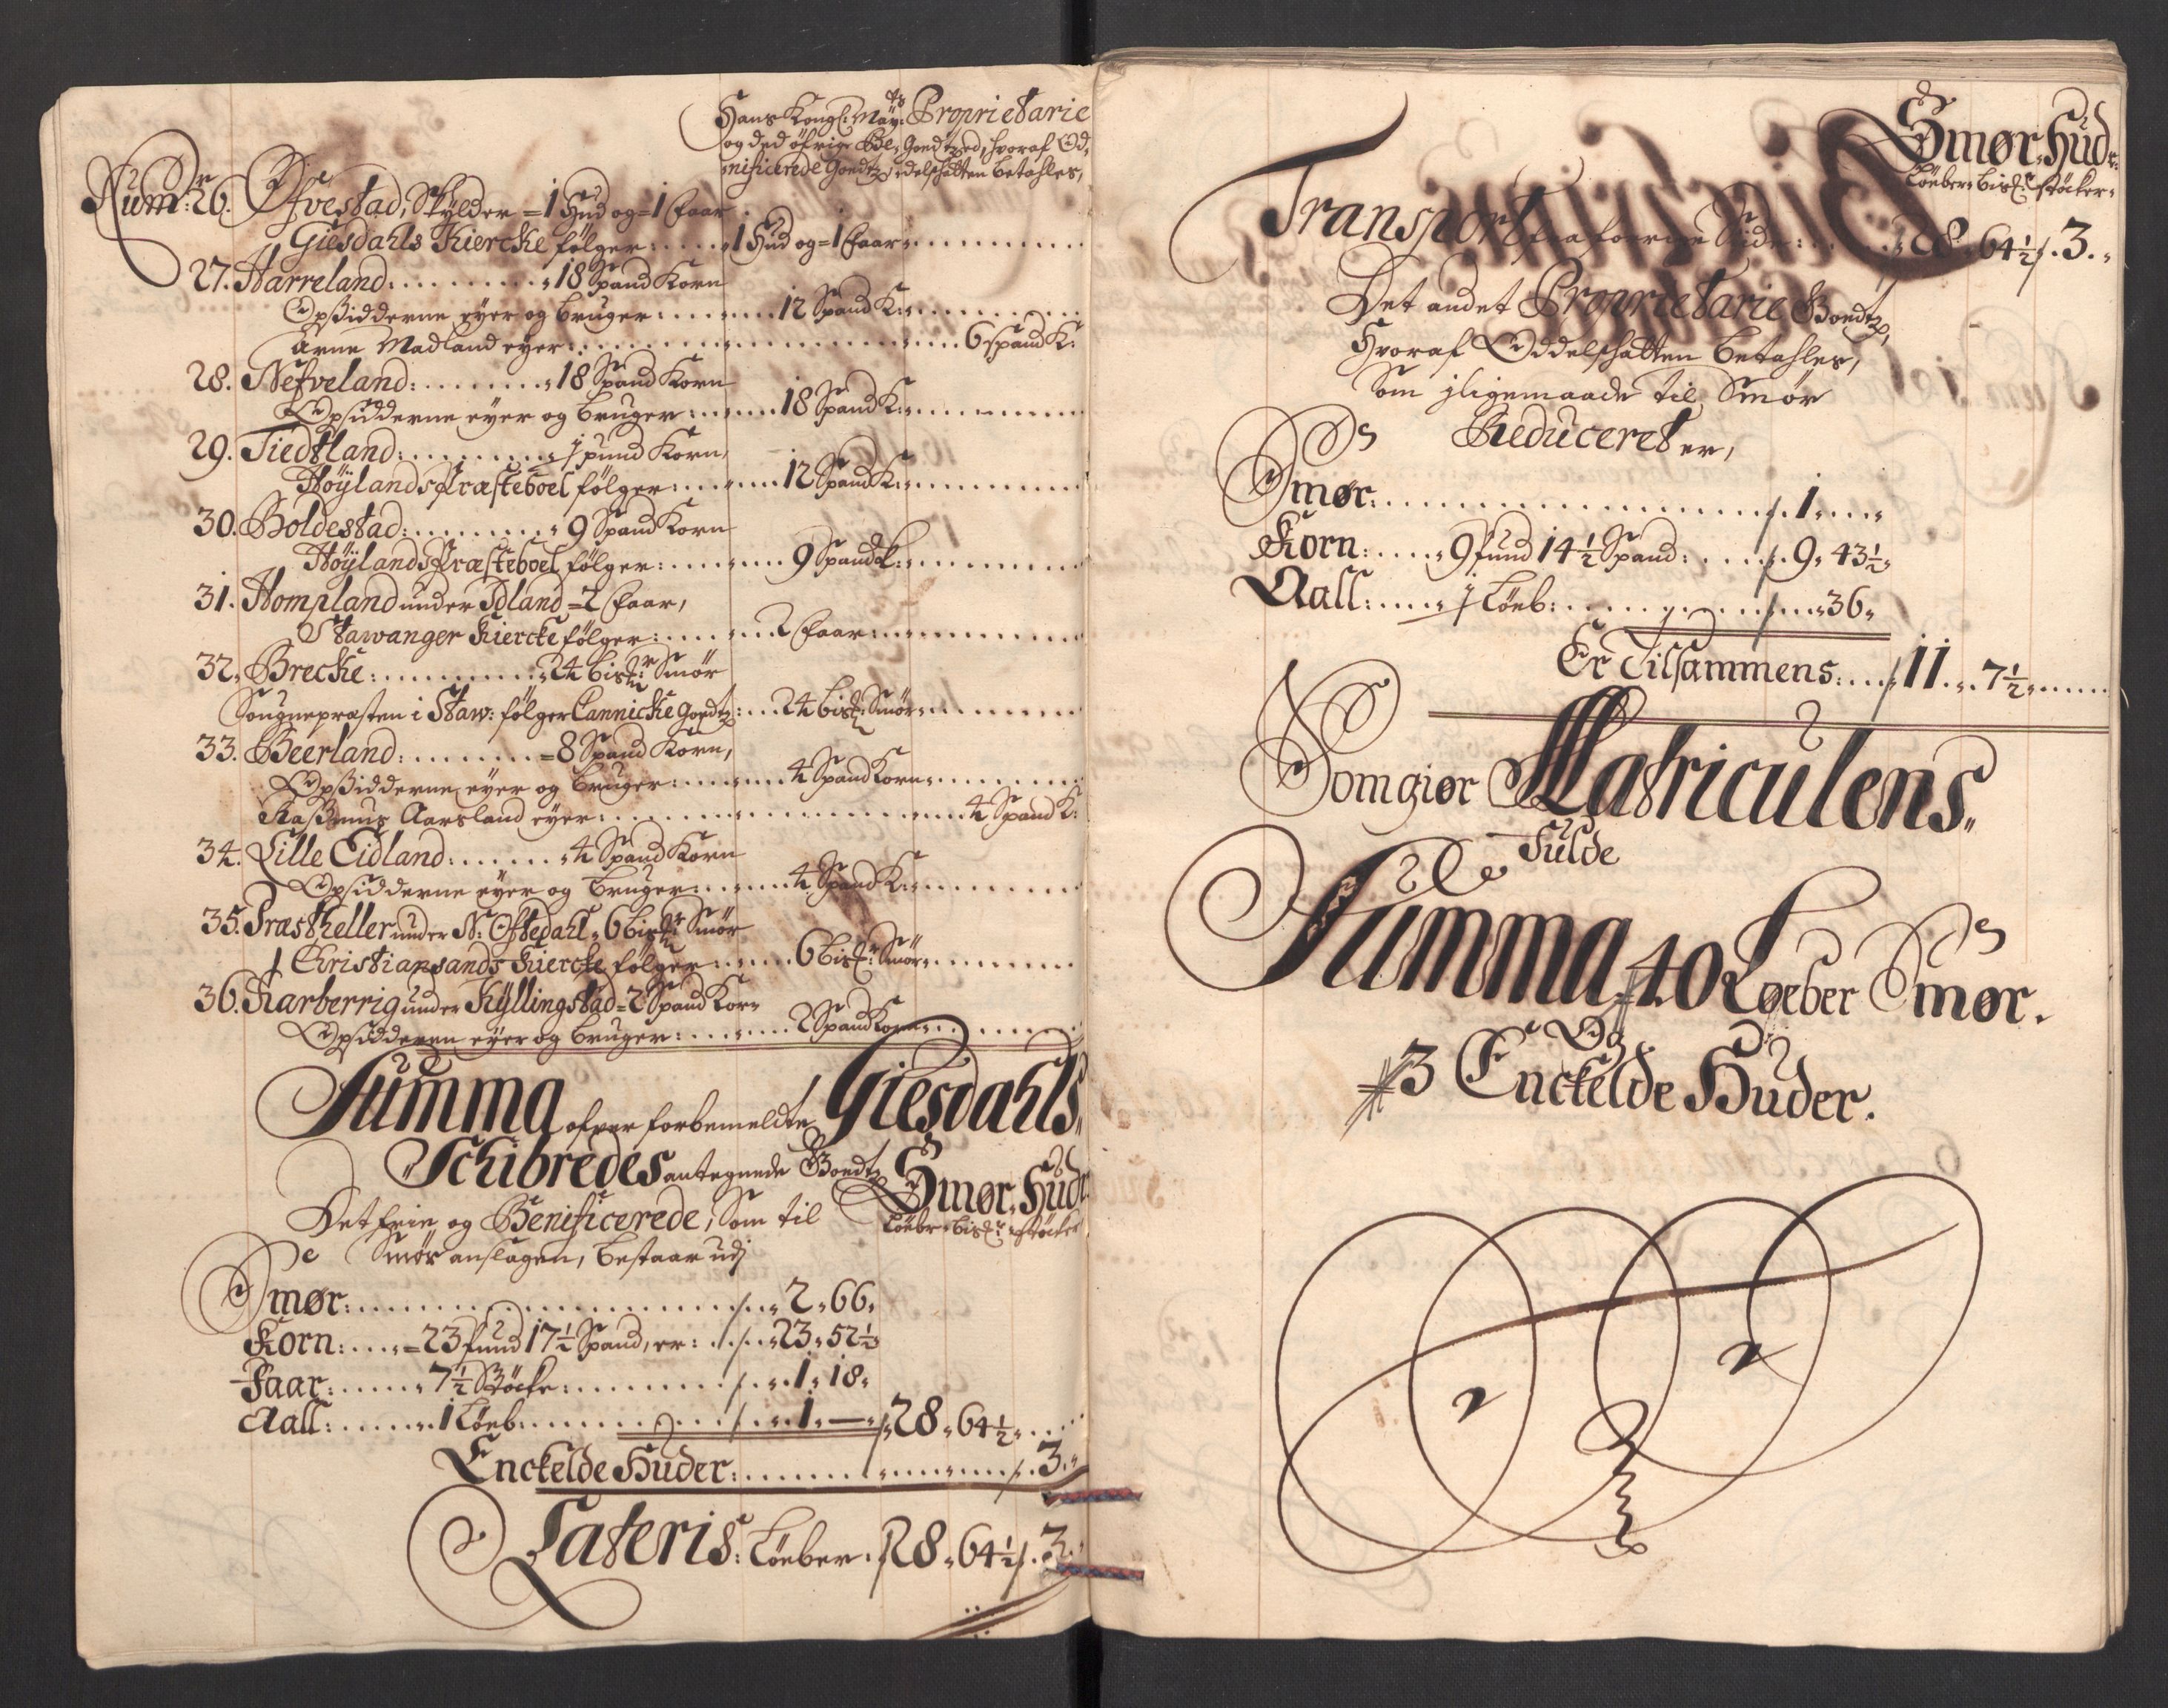 Hans Kongl: May: tz Proprietarie
og ded öfrige Be- Goedtz, ved, hvoraf Od-
nificerede Goedtz, delschatten betahles,
Numr: 26. Ofvestad, Skylder = 1 Hud og = 1 Faar
Giesdahls Kiercke følger: 1 Hud og = 1 Faar
27. Harreland: 18 Spand Korn
Opsidderne eyer og bruger: 12 Spand K:
Arne Madland eyer: 6 Spand K:
28. Nefveland: 18 Spand Korn
Opsidderne eyer og bruger: 18 Spand K:
29. Tiedtland: 1 pund Korn,
Höylands Præsteboel følger: 12 Spand K:
30. Boldestad: 9 Spand Korn
Höylands Præsteboel følger: 9 Spand K:
31. Hompland under Idland = 2 Faar,
Stawanger Kiercke følger: 2 Faar
32. Brecke: 24 bismr: Smør
Sougnepræsten i Staw: følger Cannicke Goedtz: 24 bismr: Smør
33. Beerland: = 8 Spand Korn,
Opsidderne eyer og bruger: 4 Spand Korn
Rasmus Aarsland eyer: 4 Spand K:
34. Lille Eidland: 4 Spand Korn
Opsidderne eyer og bruger: 4 Spand K:
35. Præstheller under N: Oftedahl, 6 bismr: Smør
Christiansands Kiercke følger 6 bismr: Smør
36. Karberrig under Kyllingstad = 2 Spand Korn
Opsidderen eyer og bruger: 2 Spand Korn
Summa ofver forbemeldte Giesdahls
Schibredes antegnede Goedtz Smør, Hudr
Det frie og Benificerede, Som til Löebr bismr: Støcker
Smør anslagen, bestaar udj
Smør: 2 „ 66
Korn: = 23 pund 17½ Spand, er: 23 „ 52½
Faar: 7½ Støcke: 1 „ 18
Aall: 1 Löeb: 1 „ — 28 „ 64½
Enckelde Huder: 3
Lateris: Löeber. 28 „ 64½ 3
Smør, Hudr:
Löeber, bismr: Støcker
Transport fra foerige Side: 28 „ 64½ 3.
Det andet Proprietarie Goedtz,
Hvoraf Oddelschatten betahles,
Som jligemaade til Smør
Reduceret er,
Smør: 1
Korn: 9 pund 14½ Spand: 9 „ 43½
Aall: ½ Löeb: 36
Er Tilsammens: 11 „ 7½
Som giør Matriculens
fulde
Summa 40 Løeber Smør.
Og
3 Enckelde Huder.